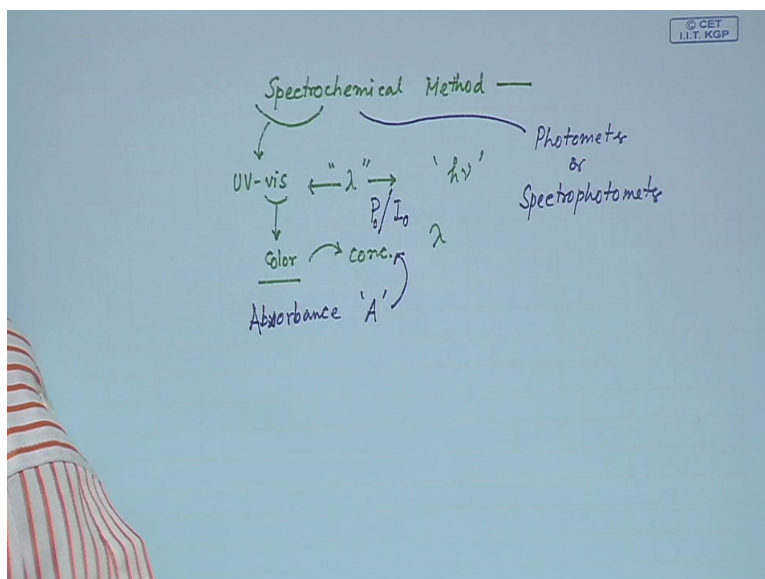 © CET
I.I.T. KGP
Spectrochemical Method —
Photometer
or
Spectrophotometer
UV-vis ← "λ" → 'hν'
P₀/I₀
Color conc. λ
Absorbance 'A'